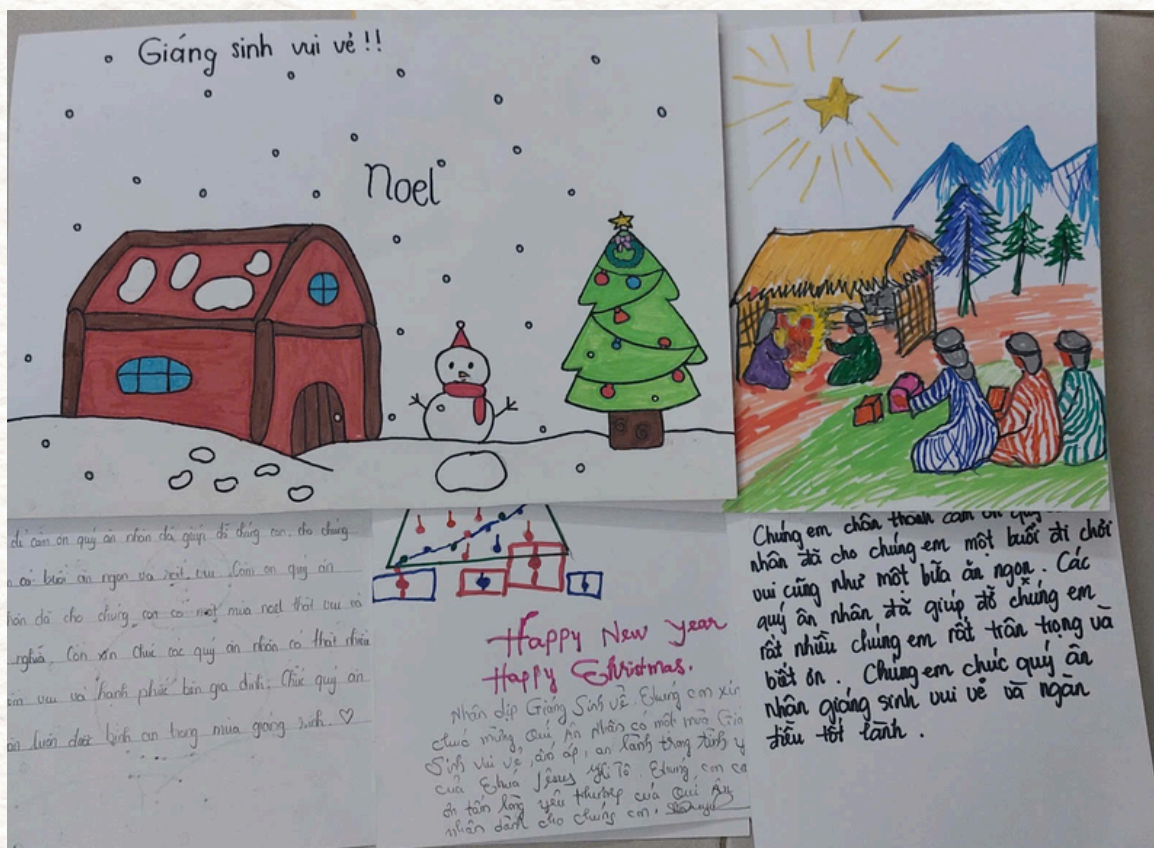 Giáng sinh vui vẻ!!
Noel
để cám ơn quý ân nhân đã giúp đỡ chúng con, cho chúng
có buổi ăn ngon và thật vui. Cám ơn quý ân
nhân đã cho chúng con có một mùa noel thật vui và
nghĩa. Con xin chúc các quý ân nhân có thật nhiều
vui và hạnh phúc bên gia đình, chúc quý ân
luôn được bình an trong mùa giáng sinh. ♡
Happy New Year
Happy Christmas.
Nhân dịp Giáng Sinh về. Chúng con xin
chúc mừng Quí Ân Nhân có một mùa Giá
Sinh vui vẻ, ấm áp, an lành trong tình y
của Chúa Jêsus Ki Tô. Chúng con cá
ơn tấm lòng yêu thương của Quí Ân
nhân dành cho chúng con.
Chúng em chân thành cảm ơn quý
nhân đã cho chúng em một buổi đi chơi
vui cũng như một bữa ăn ngon. Các
quý ân nhân đã giúp đỡ chúng em
rất nhiều chúng em rất trân trọng và
biết ơn. Chúng em chúc quý ân
nhân giáng sinh vui vẻ và ngàn
điều tốt lành.